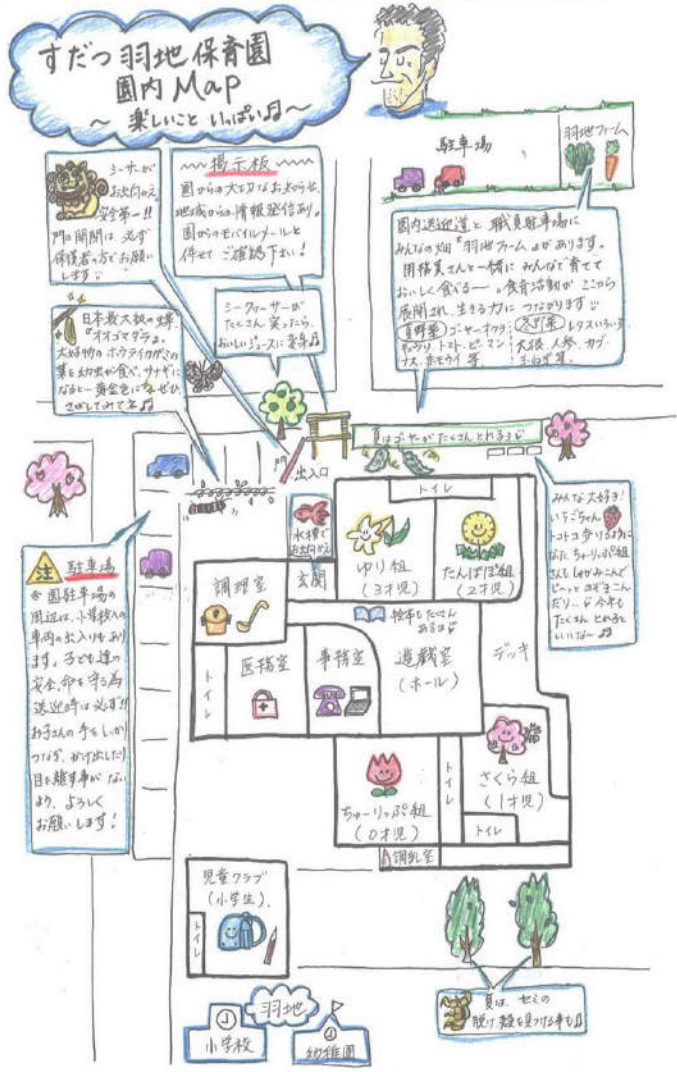 すだつ 羽地 保育園
園内 Map
～ 楽しいこと いっぱい♫～
駐車場
羽地ファーム
シーサーが
お出向かえ。
安全第一!!
門の開閉は、必ず
保護者の方でお願い
します
～～掲示板～～
園からの大切なお知らせ、
地域からの情報発信あり。
園からのモバイルメールと
併せて ご確認下さい!
園内送迎道と 職員駐車場に
みんなの畑『羽地ファーム』があります。
用務員さんと一緒に みんなで育てて
おいしく食べる～。食育活動が ここから
展開され、生きる力に つながります
夏野菜 ゴーヤー オクラ
キュウリ トマト、ピーマン
ナス、 等
冬野菜 レタスいろいろ
大根 人参、カブ
玉ねぎ 等
シークヮーサーが
たくさん 実ったら、
おいしいジュースに変身♫
日本最大級の蝶
『オオゴマダラ』。
大好物の ホウライカガミの
葉を幼虫が食べ、サナギに
なると… 黄金色に!! ぜひ
さがしてみてネ♫
夏はゴーヤーがたくさんとれるョ
門
出入口
みんな大好き!
いちごちゃん
トコトコ歩けるように
なった ちゅーりっぷ組
さんも しゃがみこんで
じーっと のぞきこん
だり…。今年も
たくさん とれると
いいな～♫
注 駐車場
※ 園駐車場の
周辺は、小学校への
車両の出入りもあり
ます。子ども達の
安全、命を守る為
送迎時は 必ず!!
お子さんの 手をしっかり
つなぎ、かけ出したり
目を離す事が ない
よう、よろしく
お願いします!
トイレ
水槽で
お出向かえ
玄関
ゆり組
(3才児)
たんぽぽ組
(2才児)
調理室
絵本もたくさん
あるョ
トイレ
医務室
事務室
遊戯室
(ホール)
デッキ
ちゅーりっぷ組
(0才児)
トイレ
さくら組
(1才児)
トイレ
調乳室
児童クラブ
(小学生)
トイレ
羽地
小学校
幼稚園
夏は、セミの
脱け殻を見つける事も♫